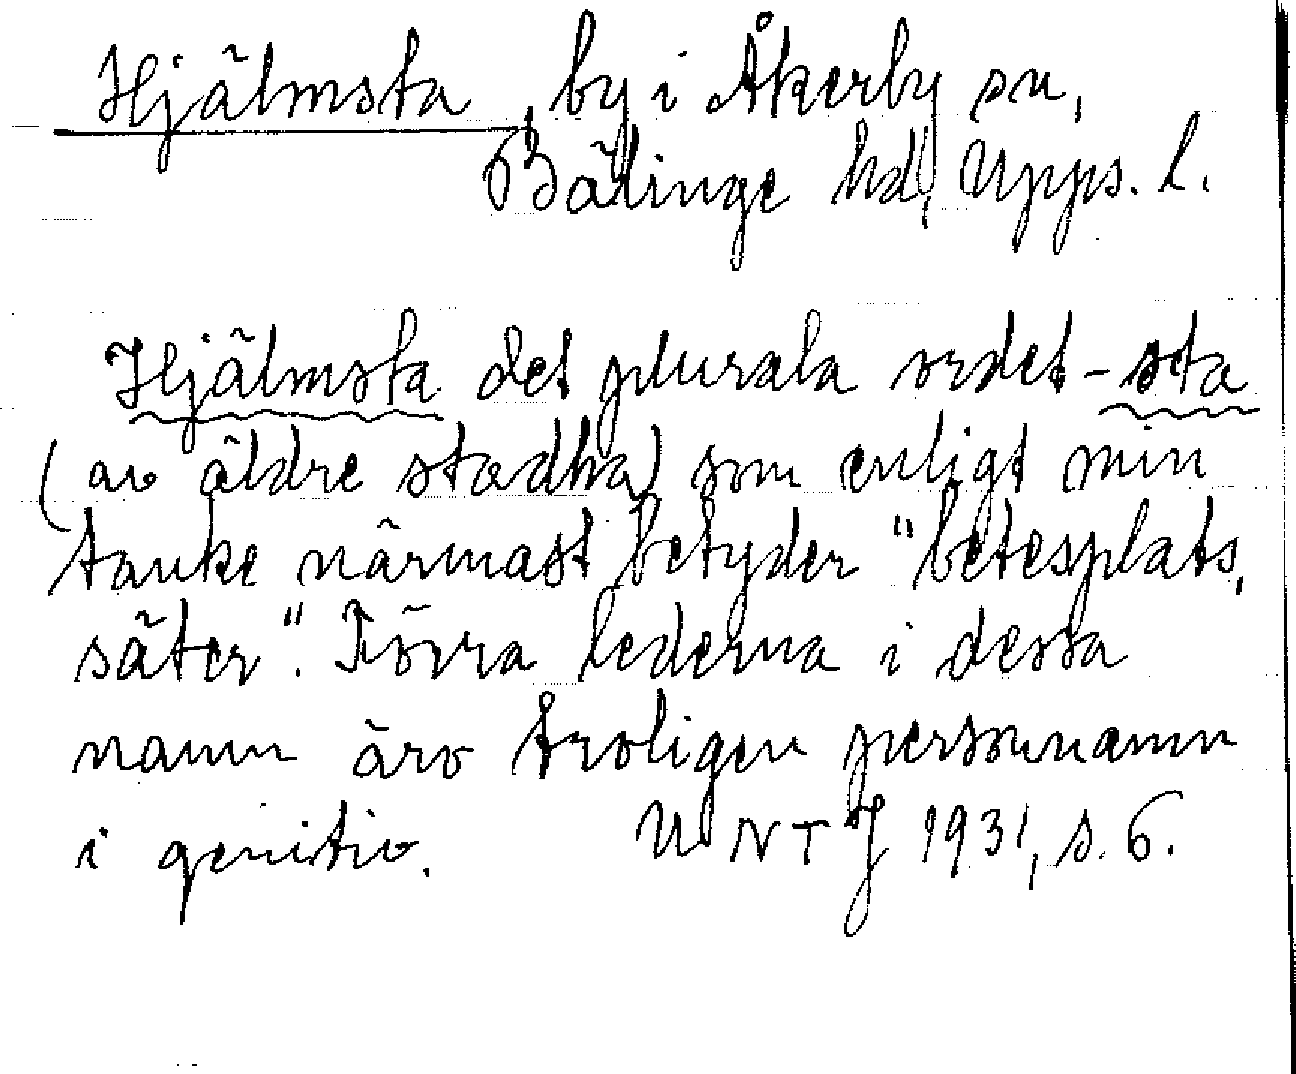 Hjälmsta, by i Åkerby sn,
Bälinge hd, Upps. l.
Hjälmsta det plurala ordet -sta
(av äldre stadha) som enligt min
tanke närmast betyder "betesplats,
säter". Förra lederna i dessa
namn äro troligen personnamn
i genitiv. UNTJ 1931, s. 6.